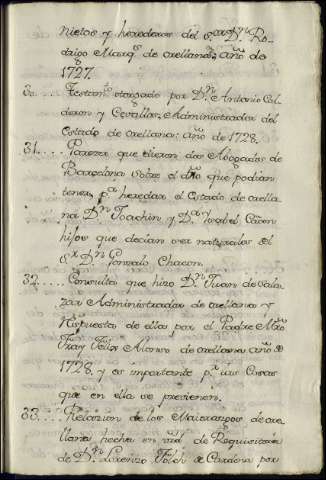 nietos y herederos del S.or D.n Ro-
drigo Marq.s de orellana; año de
1727.
30.... Testam.to otorgado por D.n Antonio Cal-
deron y Cevallos, Administrador del
Estado de orellana: año de 1728.
31.... Parezer que dieron dos Abogados de
Barzelona sobre el dro que podian
tener, p.a heredar el Estado de orella-
na D.n Joachin y D.a Ysabel Chacon
hijos que decian ser naturales del
S.r D.n Gonzalo Chacon.
32.... Consulta que hizo D.n Juan de Sala-
zar Administrador de orellana y
Respuestas de ellas por el Padre Mro
Fray Felix Alonso de orellana año de
1728. y es importante p.a las Cosas
que en ella se previenen.
33.... Relacion de los Maiorazgos de ore-
llana hecha en vrd. de Requisitoria
de D.n Lorenzo Folch de Cardona por